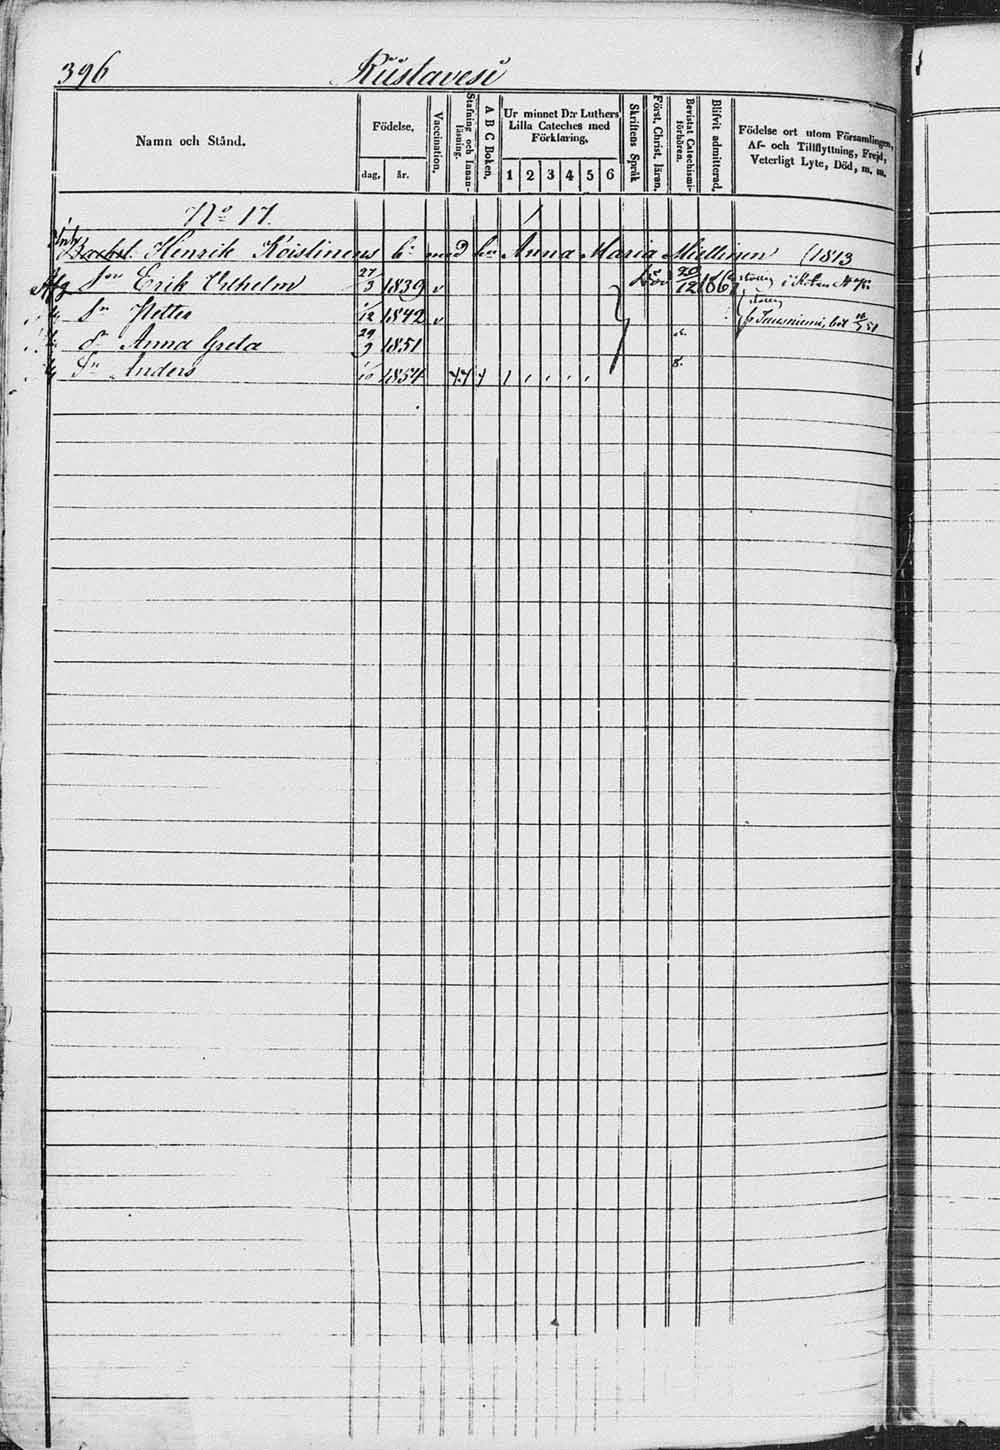 396 Riistavesi
Namn och Stånd.
Födelse,
dag, år.
Vaccination,
Stafning och Innan-läsning.
A B C Boken,
Ur minnet D:r Luthers
Lilla Cateches med
Förklaring,
1 2 3 4 5 6
Skriftens Språk
Först. Christ. läran.
Bevistat Catechismi-förhören.
Blifvit admitterad.
Födelse ort utom Församlingen,
Af- och Tillflyttning, Frejd,
Veterligt Lyte, Död, m. m.
No 17.
Henrik Koistinens med Anna Maria Miettinen (1813
Son Erik Vilhelm 27/3 1839 v död 20/12 1867
Sn 1/12 1842 v
dr Anna Greta 29/9 1851
Sn Anders 1/10 1854